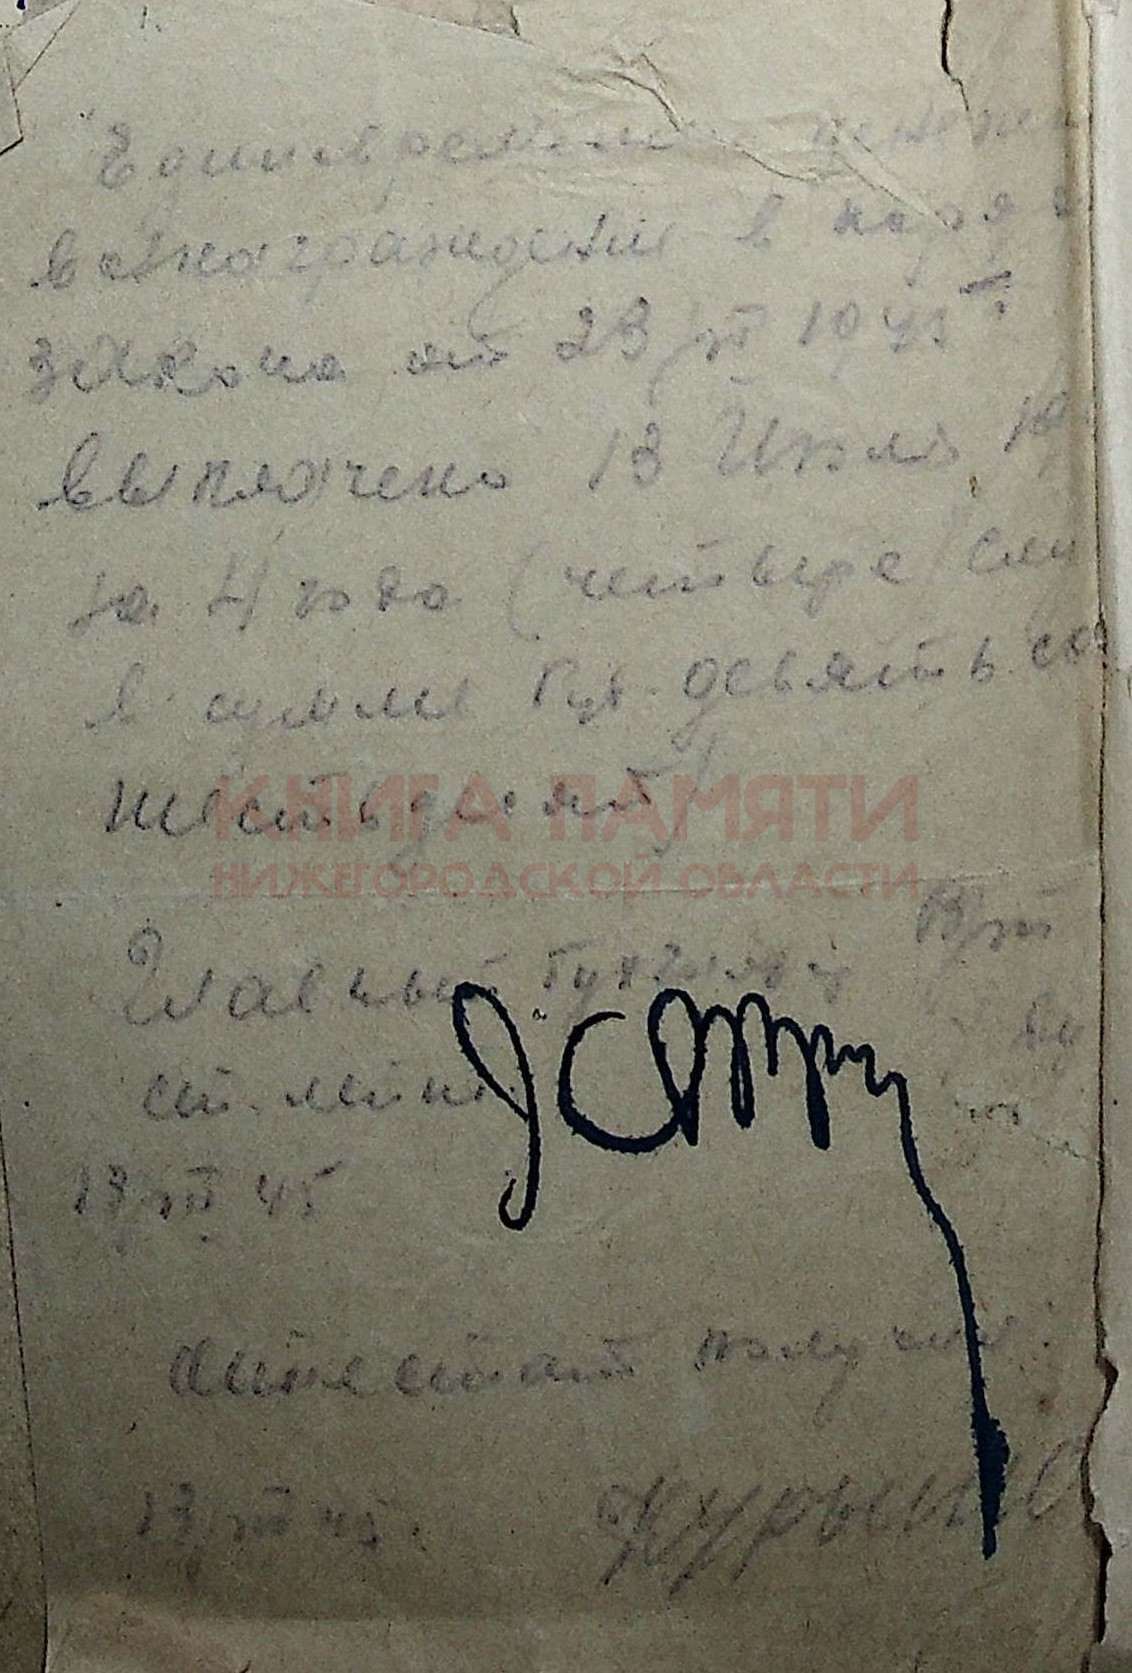 Единовременное денежн
вознаграждение в поряд
закона от 23/VI 1945 г.
выплачено 13 Июля 19
за 4 года (четыре)
в сумме руб. девятьсо
шестьдесят
КНИГА ПАМЯТИ
НИЖЕГОРОДСКОЙ ОБЛАСТИ
Главный бухгалтер
ст. лейт.
13/VII 45
Аттестат получил
13/VII 45.